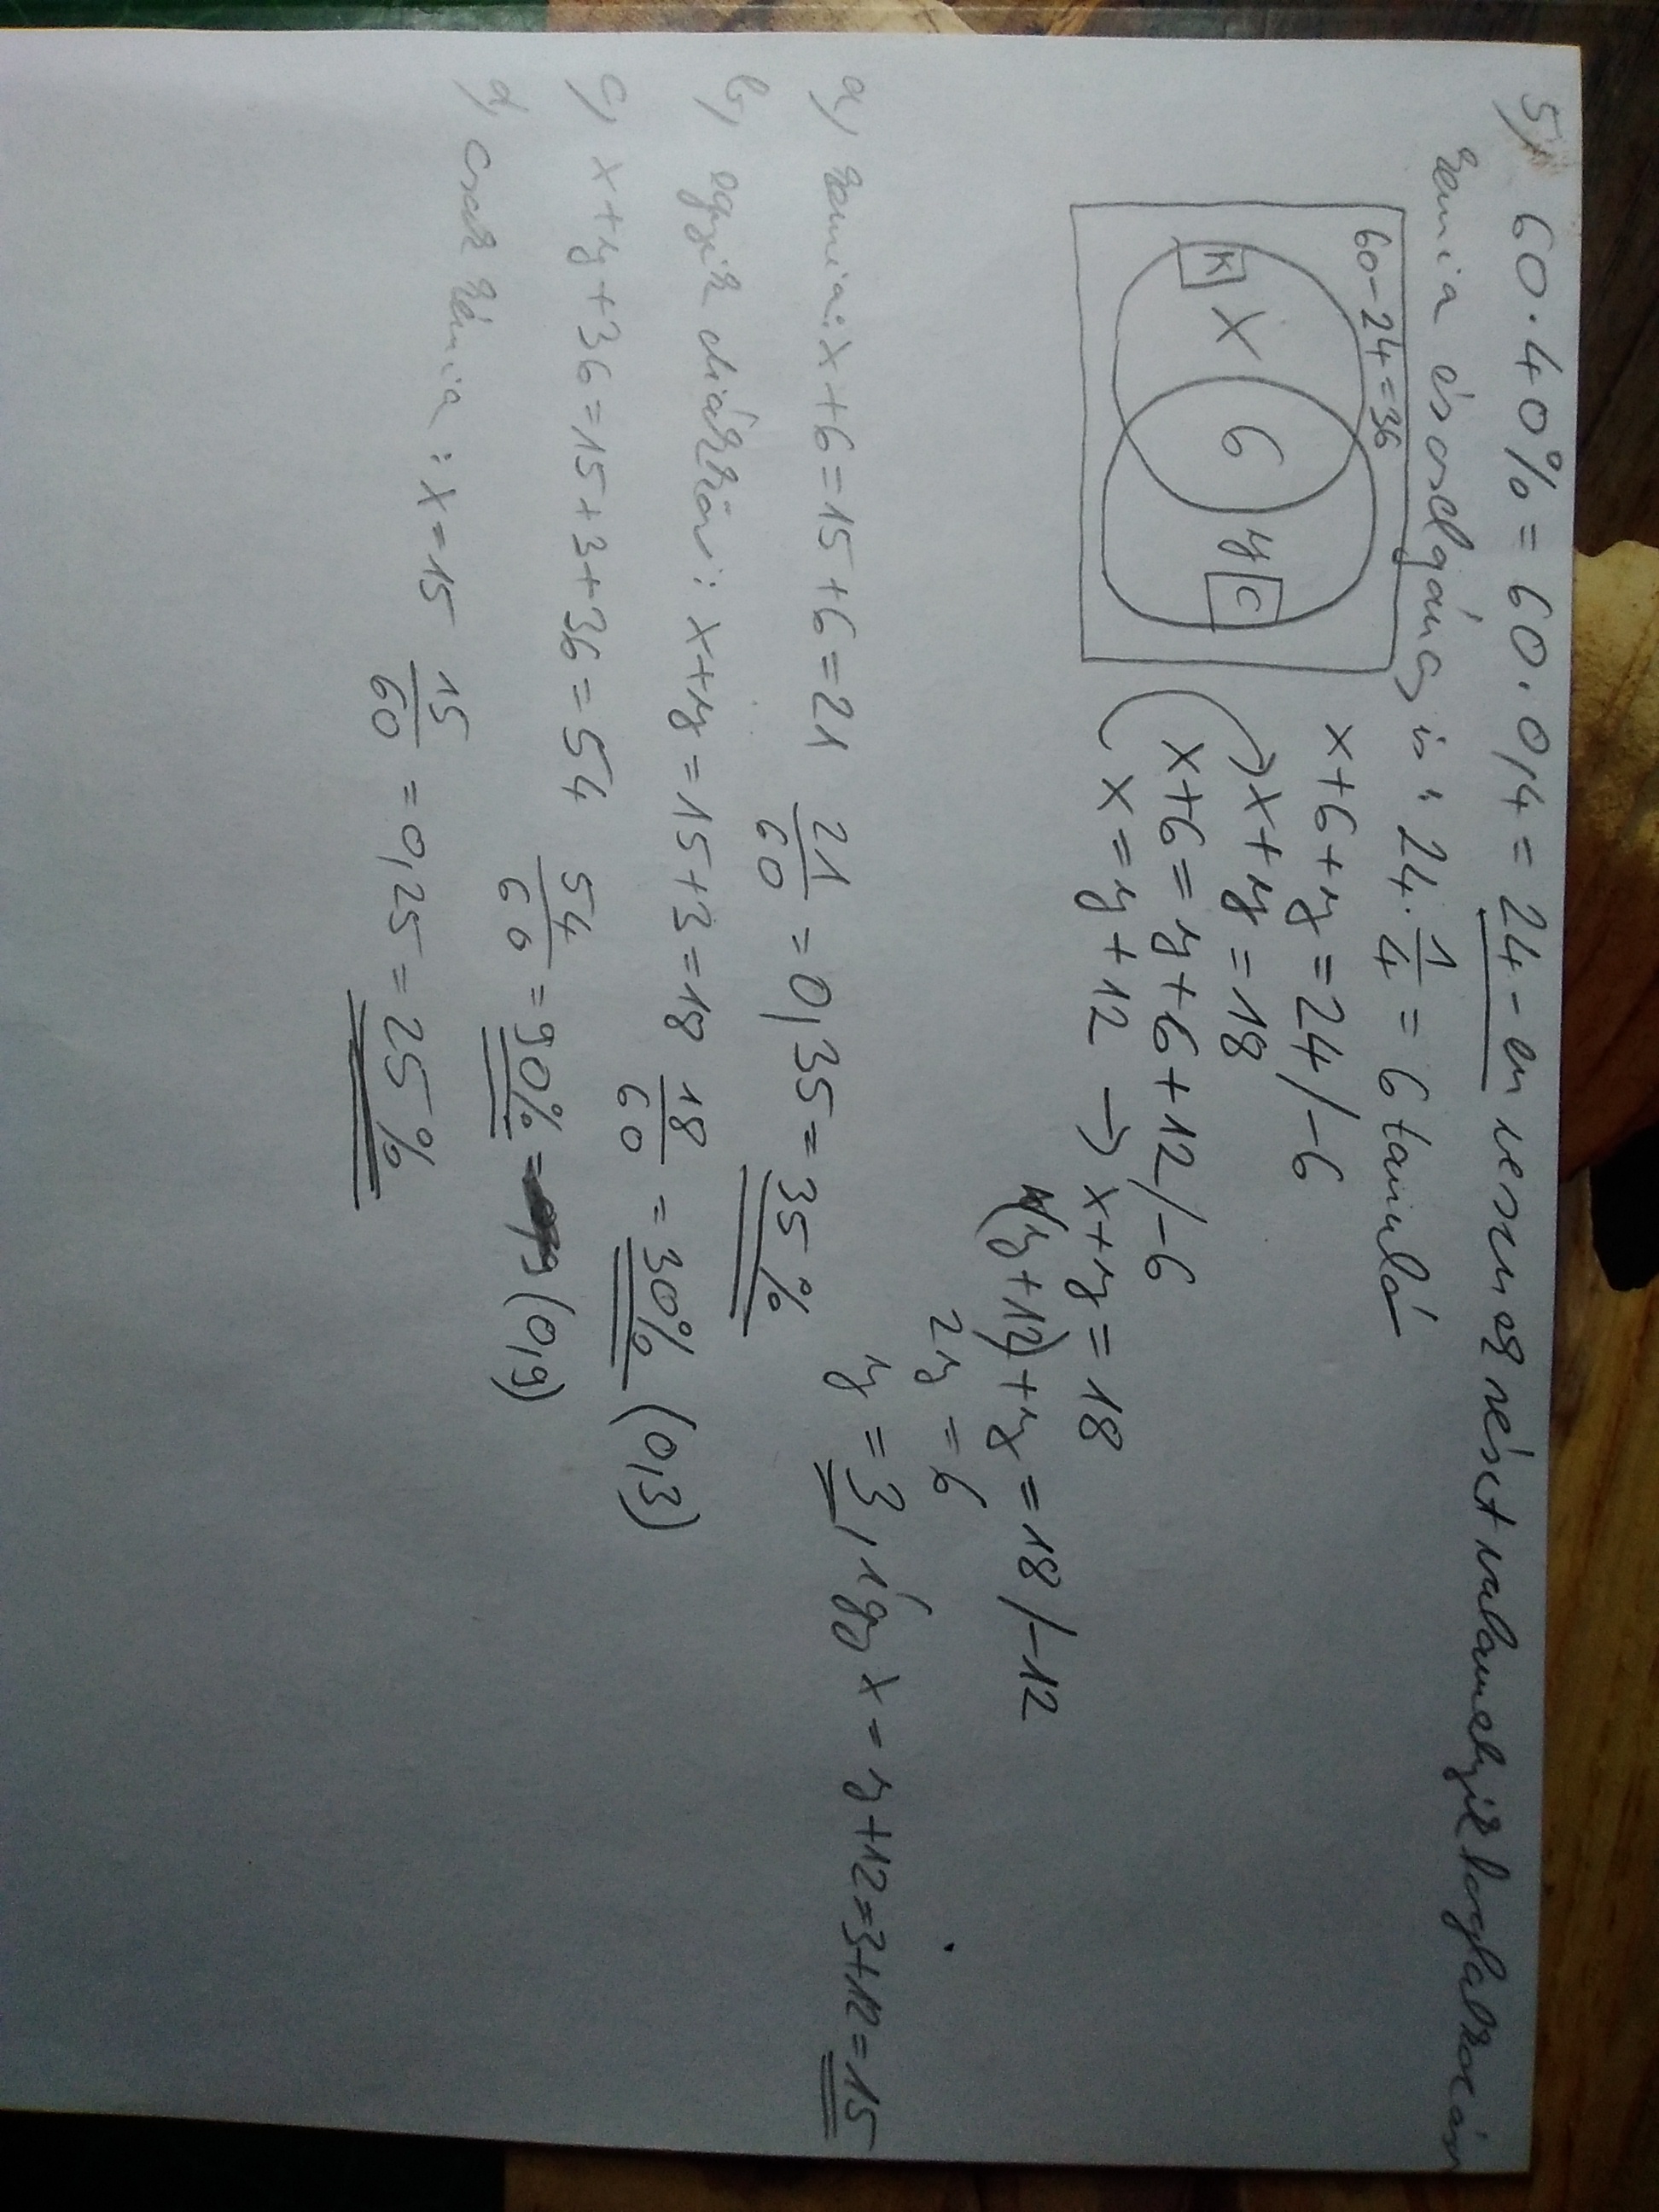 5, 60·40% = 60·0,4 = 24-en vesznek részt valamelyik foglalkozáson
kémia és csillagász is: 24·1/4 = 6 tanuló
60-24=36
K x 6 y C
x+6+y=24/-6
x+y=18
x+6=y+6+12/-6
x=y+12 → x+y=18
(y+12)+y=18/-12
2y=6
y=3, így x=y+12=3+12=15
a, kémia: x+6=15+6=21 21/60 = 0,35 = 35%
b, egyik diákkör: x+y=15+3=18 18/60 = 30% (0,3)
c, x+y+36=15+3+36=54 54/60 = 90% = (0,9)
d, csak kémia: x=15 15/60 = 0,25 = 25%